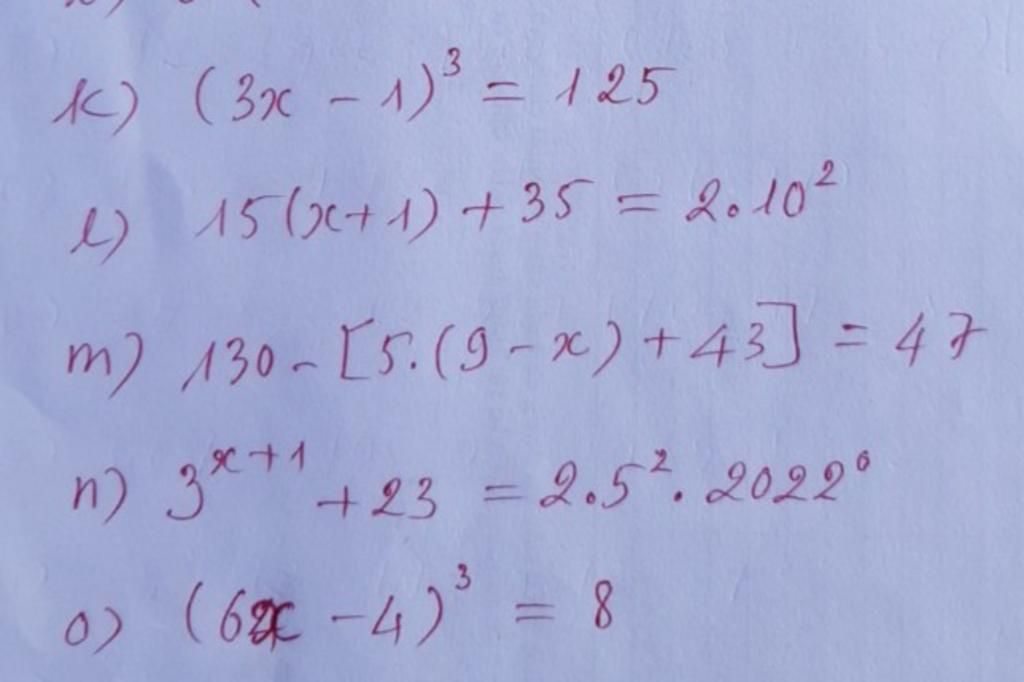 k) (3x - 1)³ = 125
l) 15(x+1) + 35 = 2.10²
m) 130 - [5.(9 - x) + 43] = 47
n) 3^{x+1} + 23 = 2.5². 2022⁰
o) (6x - 4)³ = 8